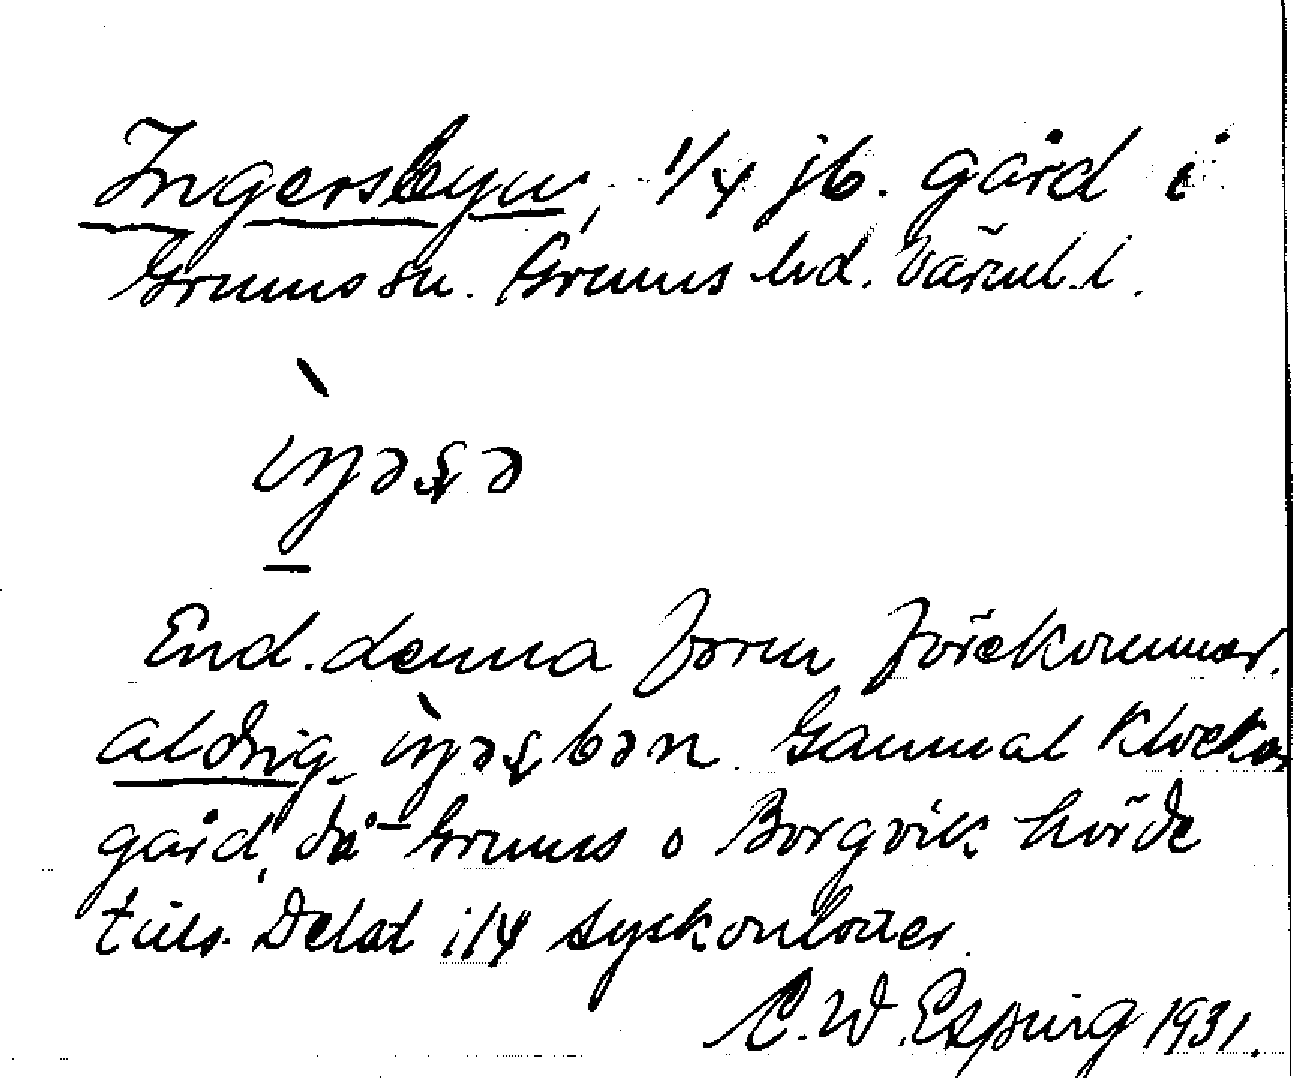 Ingersbyn, 1/4 jb. gård i
Grums sn. Grums hd. Värml. l.
ìŋəʂə
End. denna form förekommer.
aldrig ìŋəʂbən. Gammal klockar
gård, då Grums o Borgvik hörde
tills. Delat i 14 syskonlotter.
C.W. Esping 1931.